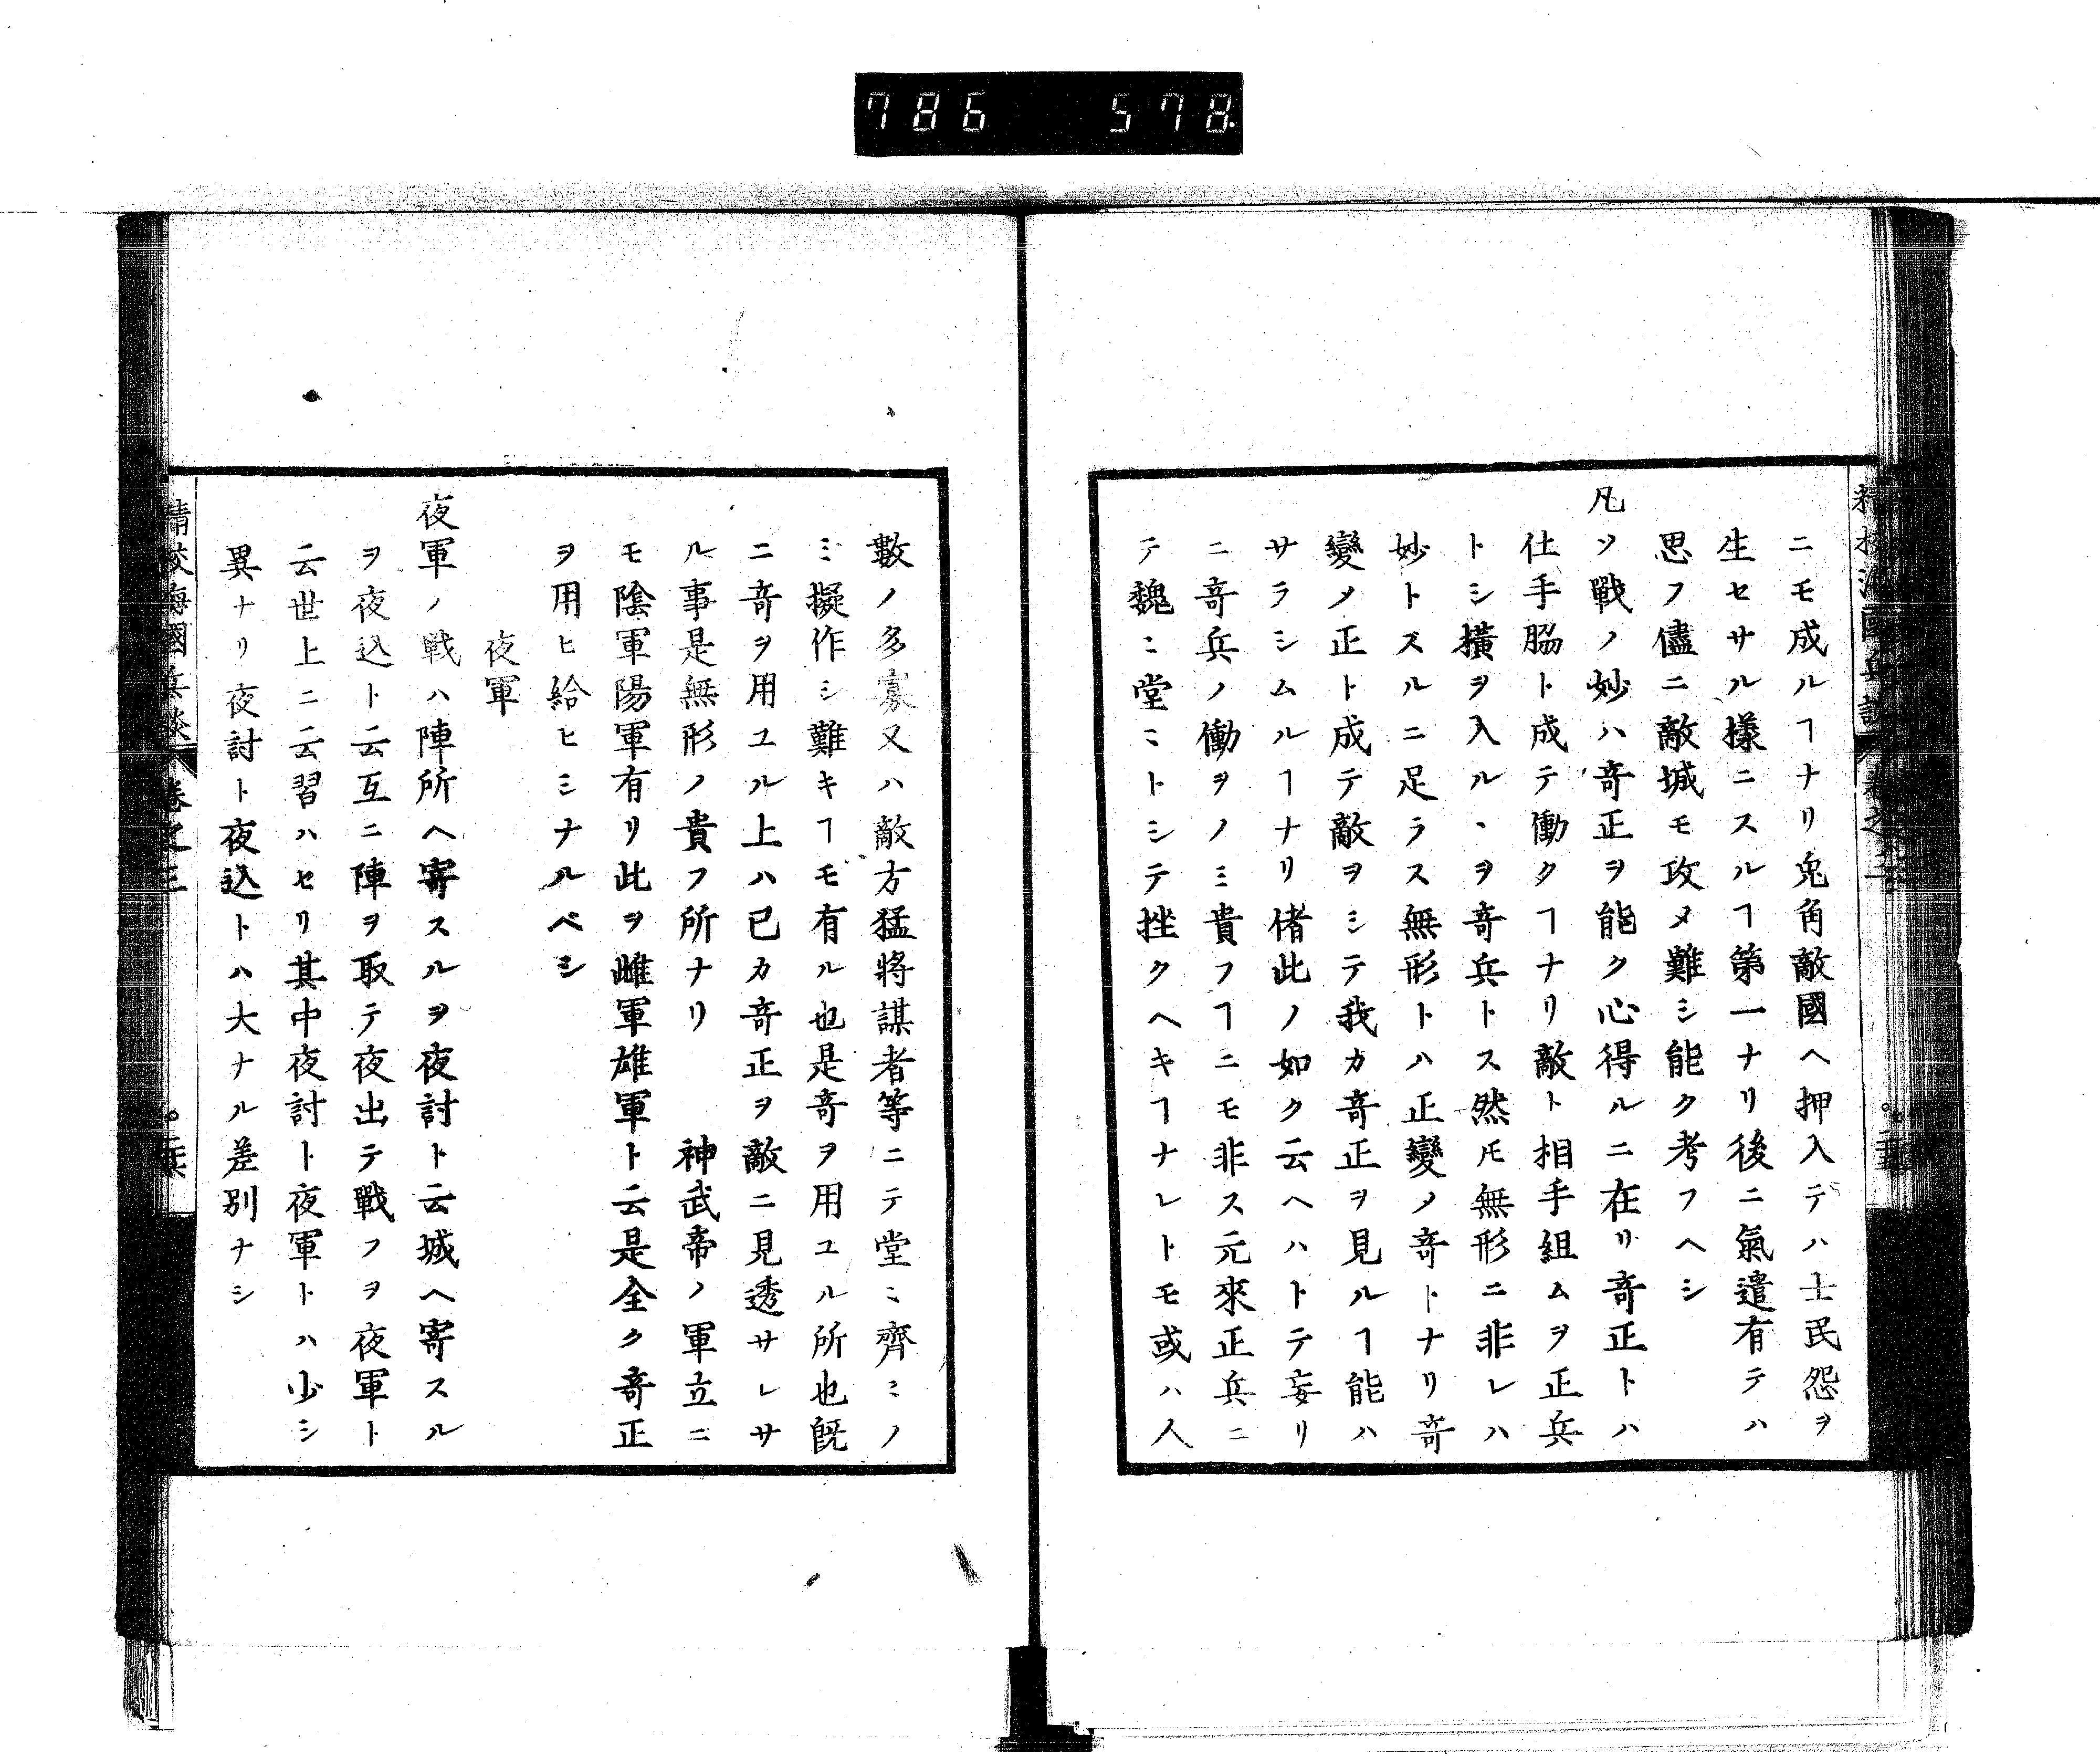 786 578
ニモ成ルヿナリ兎角敵國ヘ押入テハ士民怨ヲ
生セサル樣ニスルヿ第一ナリ後ニ氣遣有テハ
思フ儘ニ敵城モ攻メ難シ能ク考フヘシ
凡ソ戰ノ妙ハ奇正ヲ能ク心得ルニ在リ奇正トハ
仕手脇ト成テ働クヿナリ敵ト相手組ムヲ正兵
トシ横ヲ入ルヽヲ奇兵トス然𪜈無形ニ非レハ
妙トスルニ足ラス無形トハ正變ノ奇トナリ奇
變ノ正ト成テ敵ヲシテ我カ奇正ヲ見ルヿ能ハ
サラシムルヿナリ偖此ノ如ク云ヘハトテ妄リ
ニ奇兵ノ働ヲノミ貴フヿニモ非ス元來正兵ニ
テ魏〻堂〻トシテ挫クヘキヿナレトモ或ハ人
數ノ多寡又ハ敵方猛將謀者等ニテ堂〻齊〻ノ
ミ擬作シ難キヿモ有ル也是奇ヲ用ユル所也既
ニ奇ヲ用ユル上ハ已カ奇正ヲ敵ニ見透サレサ
ル事是無形ノ貴フ所ナリ　神武帝ノ軍立ニ
モ陰軍陽軍有リ此ヲ雌軍雄軍ト云是全ク奇正
ヲ用ヒ給ヒシナルベシ
夜軍
夜軍ノ戰ハ陣所ヘ寄スルヲ夜討ト云城ヘ寄スル
ヲ夜込ト云互ニ陣ヲ取テ夜出テ戰フヲ夜軍ト
云世上ニ云習ハセリ其中夜討ト夜軍トハ少シ
異ナリ夜討ト夜込トハ大ナル差別ナシ
精挍海國兵談 卷之三